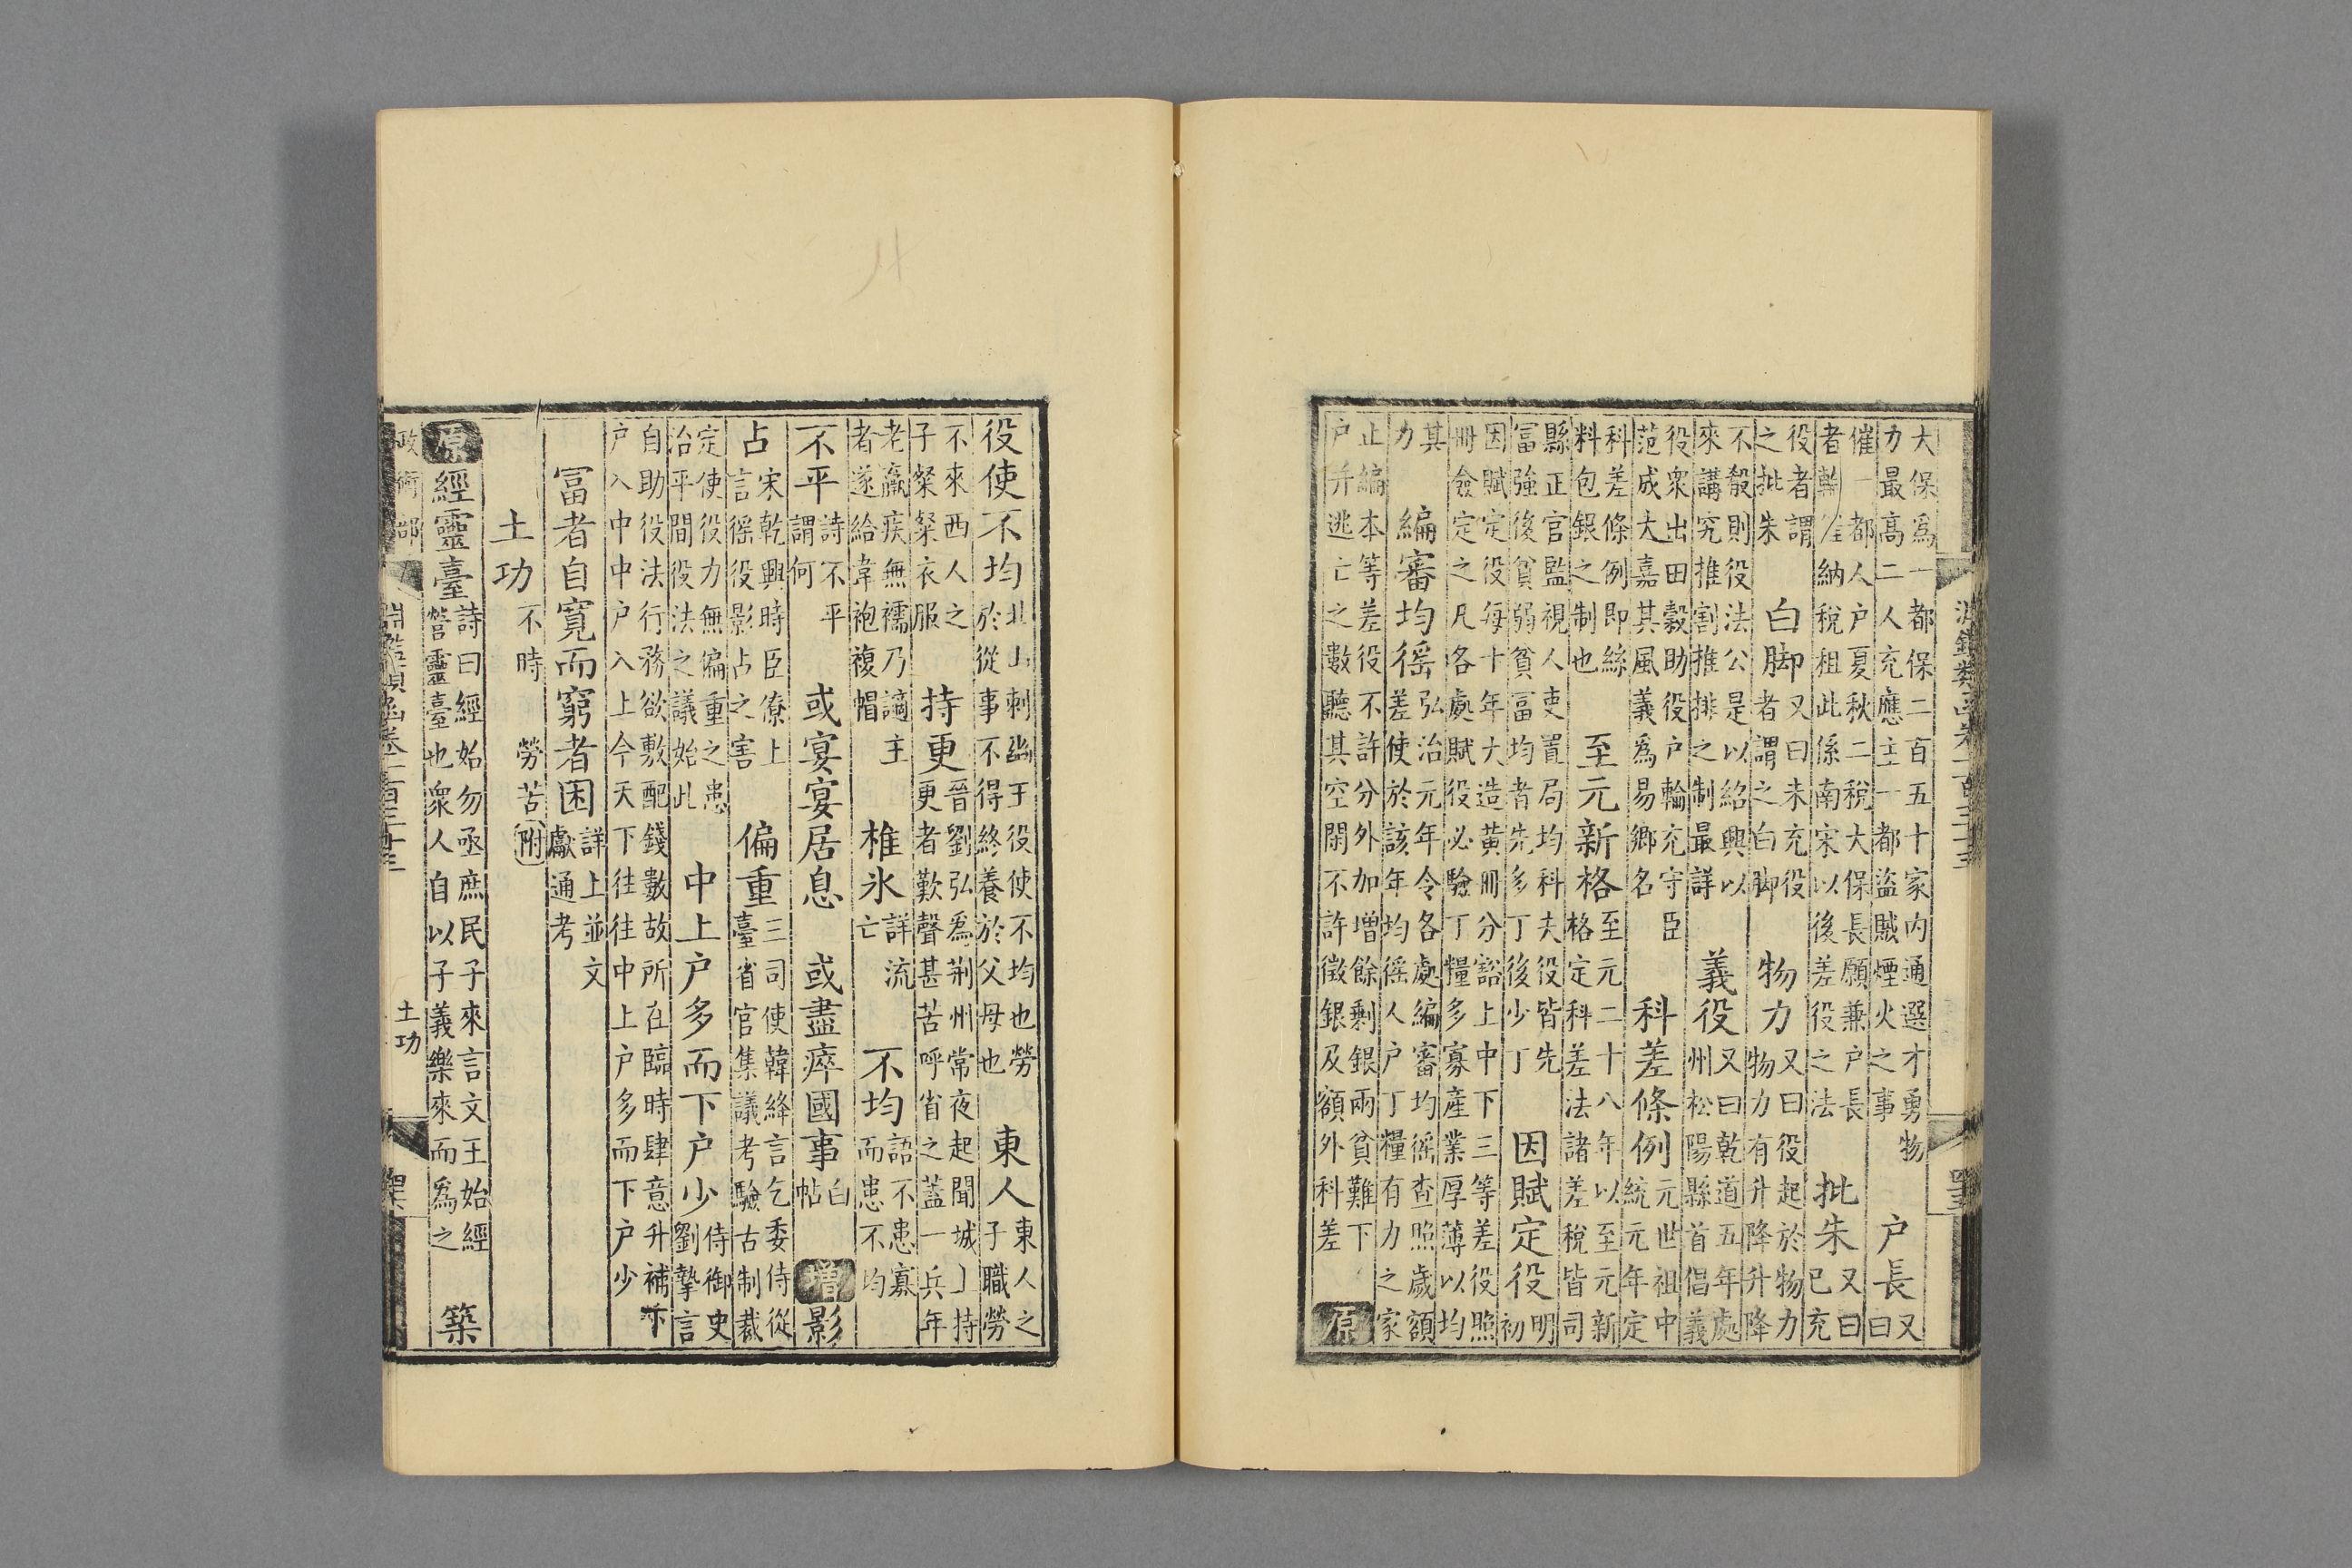 大保爲一都保二百五十家内通選才勇物力最高二人充應主一都盜賊煙火之事 户長 又曰
催一都人户夏秋二稅大保長願兼户長者納稅租此係南宋以後差役之法 批朱 又曰已充
役者謂之批朱 白脚 又曰未充役者謂之白脚 物力 又曰役起於物力物力有升降升降
不殽則役法公是以紹興以來講究推割推排之制最詳 義役 又曰乾道五年處州松陽縣首倡義
役衆出田穀助役户輪充守臣范成大嘉其風義爲易鄉名 科差條例 元世祖中統元年定
科差條例即絲料包銀之制也 至元新格 至元二十八年以至元新格定科差法諸差稅皆司
縣正官監視人吏置局均科夫役皆先富強後貧弱貧富均者先多丁後少丁 因賦定役 明初
因賦定役每十年大造黄冊分豁上中下三等差役照冊僉定之凡各處賦役必驗丁糧多寡產業厚薄以均
其力 編審均徭 弘治元年令各處編審均徭查照歲額差使於該年均徭人户丁糧有力之家
止編本等差役不許分外加增餘剩銀兩貧難下户并逃亡之數聽其空閑不許徵銀及額外科差 原
役使不均 北山刺幽王役使不均也勞於從事不得終養於父母也 東人 東人之子職勞
不來西人之子粲粲衣服 持更 晉劉弘爲荆州常夜起聞城上持更者歎聲甚苦呼省之蓋一兵年
老羸疾無襦乃謫主者遂給韋袍複帽 椎氷 詳流亡 不均 語不患寡而患不均
不平 詩不平謂何 或宴宴居息 或盡瘁國事 白帖 增 影
占 宋乾興時臣僚上言徭役影占之害 偏重 三司使韓絳言乞委侍從臺省官集議考驗古制裁
定使役力無偏重之患治平間役法之議始此 中上户多而下户少 侍御史劉摯言
自助役法行務欲敷配錢數故所在臨時肆意升補下户入中中户入上今天下往往中上户多而下户少
富者自寬而窮者困 詳上並文獻通考
土功 不時 勞苦附
原 經靈臺 詩曰經始勿亟庶民子來言文王始經營靈臺也衆人自以子義樂來而爲之 築
政術部 淵鑑類函卷一百三十三 土功